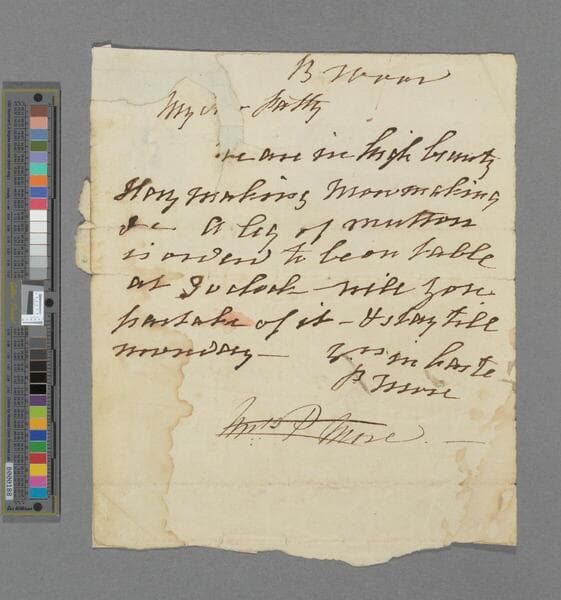 B Wood
My dear Patty
we are in high beauty
Hay making Mowmaking
&c A leg of mutton
is orderd to be on table
at 3 o clock will you
partake of it - & stay till
monday -
Yrs in haste
B More
Mrs P More. -
B000188